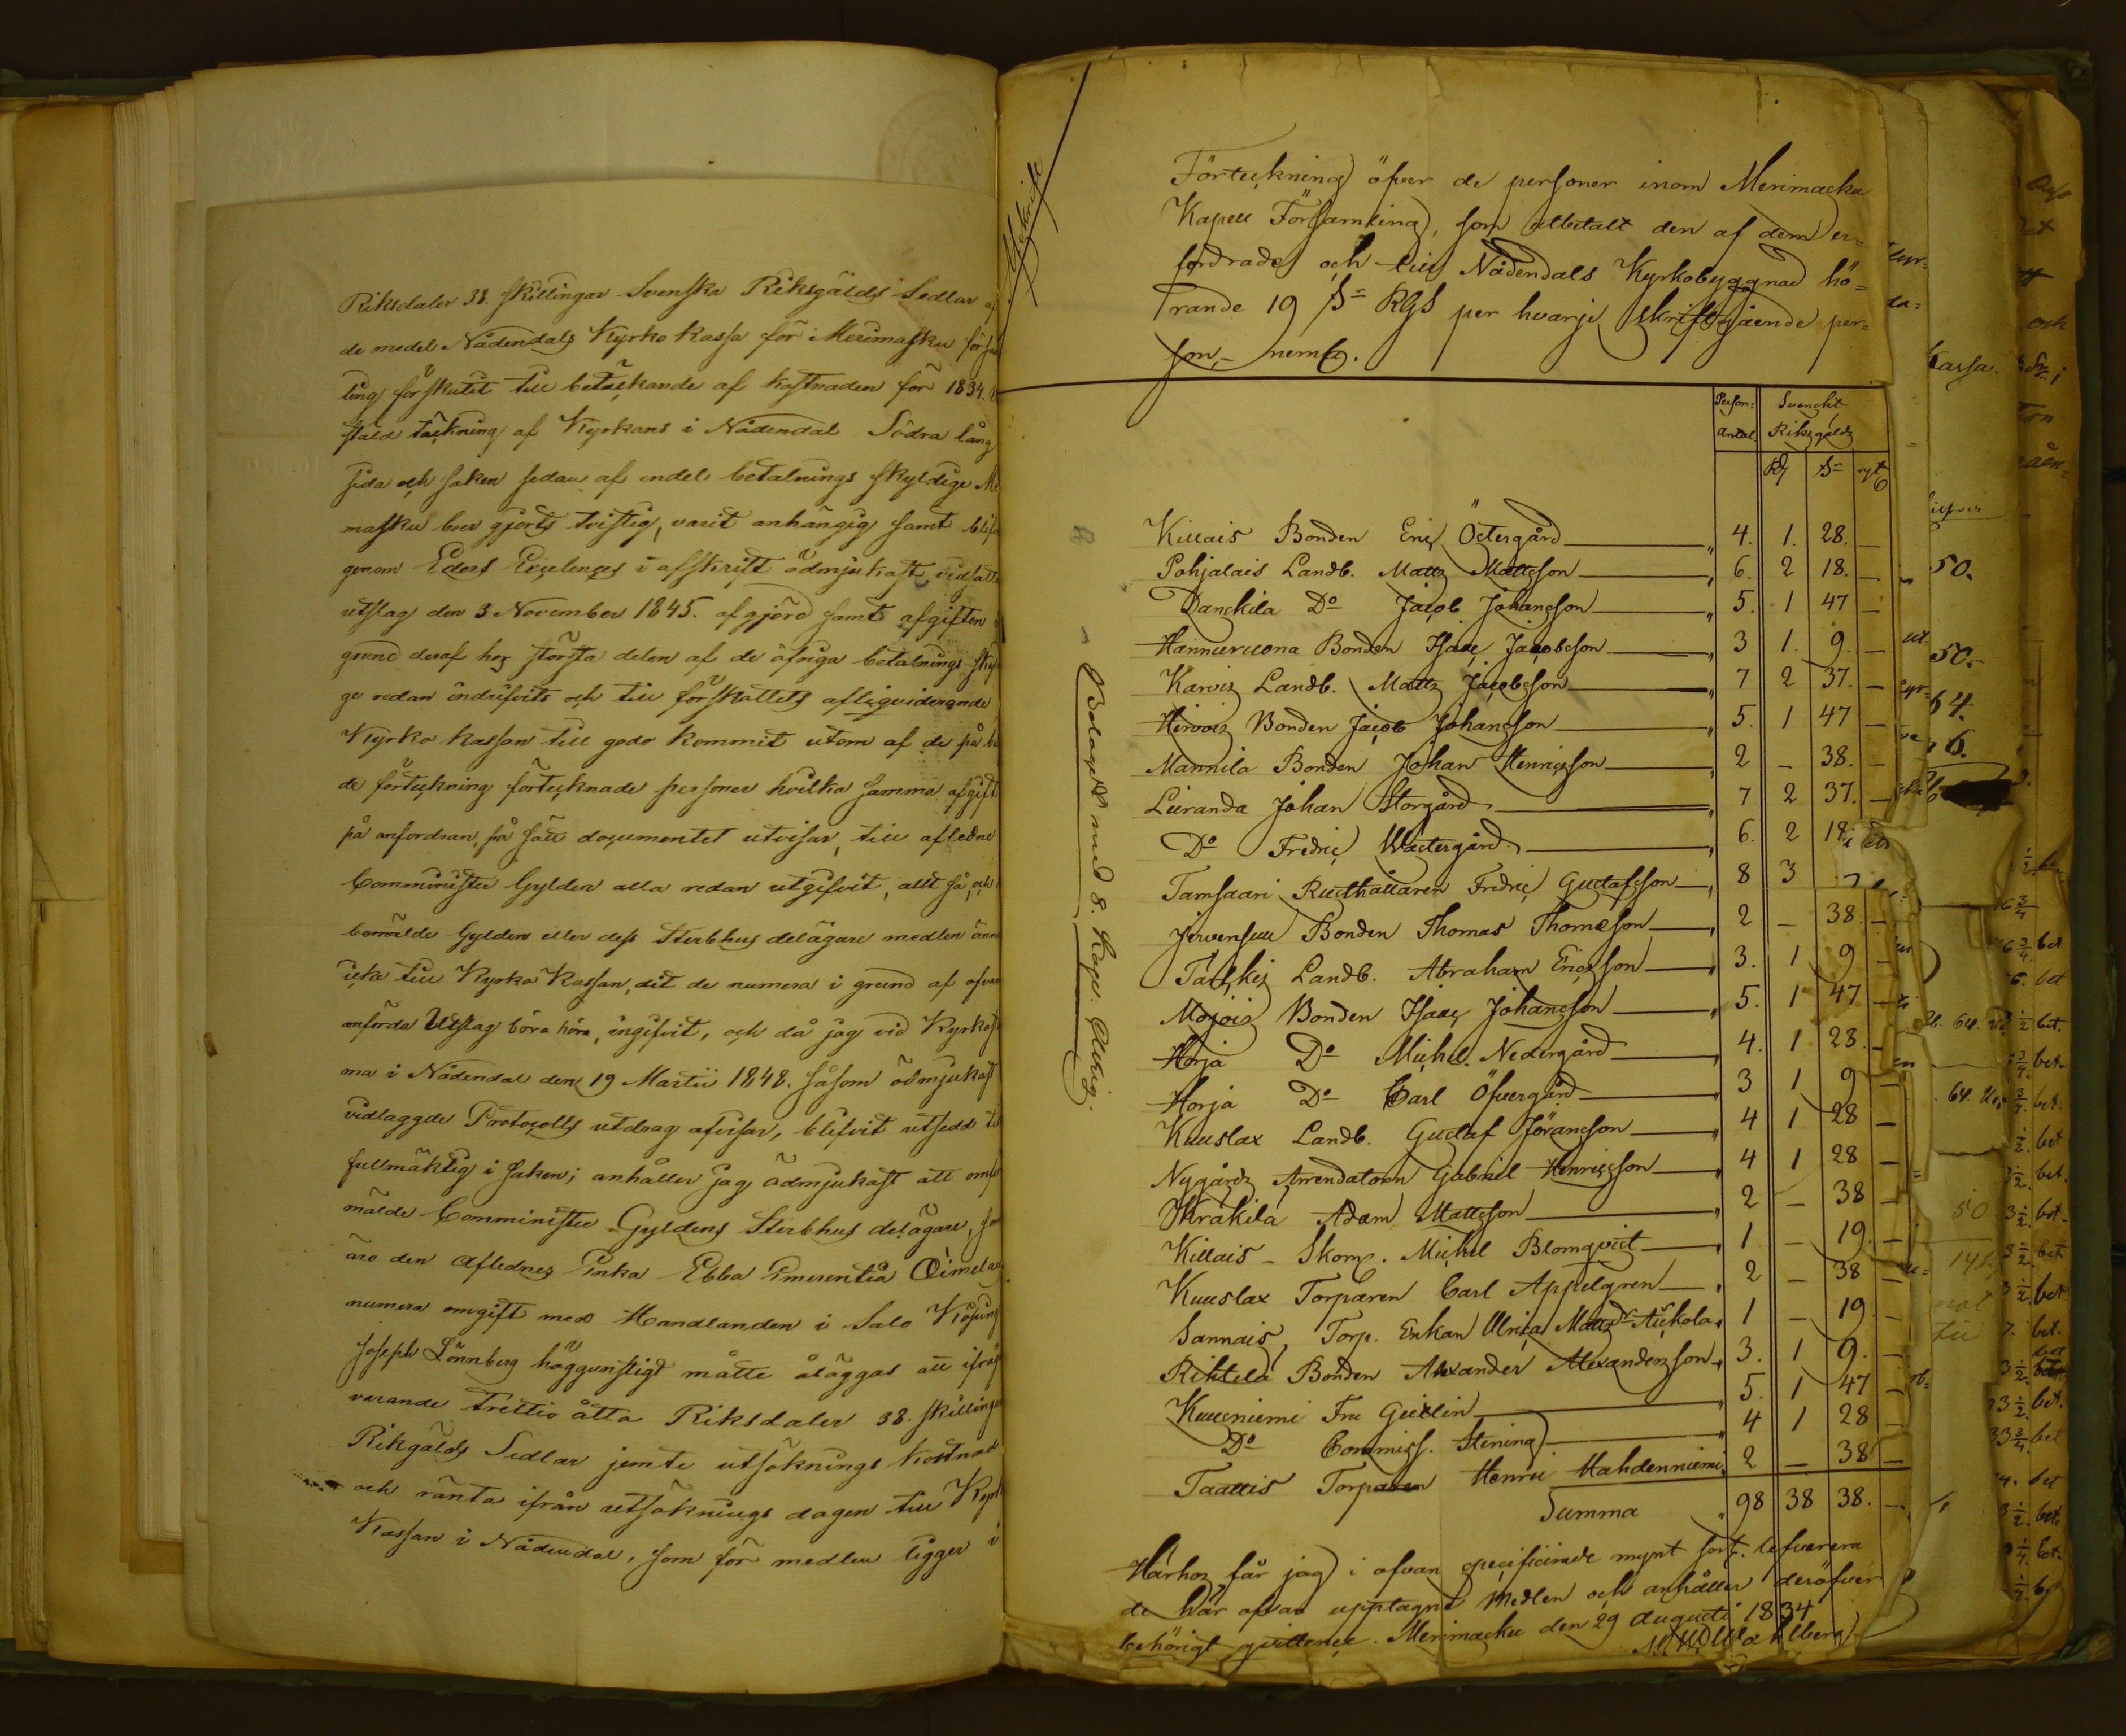 Riksdaler 38. skillingar Svenska Riksgälds Sedlar af
de medel Nådendals Kyrko Kassa för Merimasku församl
ling förskutit till betäckande af kostnaden för 1834.
stäld täckning af Kyrkans i Nådendal Södra lång
sida och saken sedan af endel betalnings skyldige Me
masku boer gjorts tvistig, varit anhängig samt blif
genom Eders Excelences i afskrift ödmjukast vidfatt
utslag den 3 November 1845. afgjord samt afgiften
grund deraf hos största delen af de öfriga betalnings sky
ge redan indrifvits och till förskottets afliqviderande
Kyrko kassan till godo kommit utom af de på
de förteckning förtecknade personer hvilka samma afgift
på anfordran, på sätt documentet utvisar, till afledne
Comminister Gylden alla redan utgifvit, allt så, och
bemälde Gylden eller dess Sterbhus delägare medlen ännu
icke till Kyrko Kassan, dit de numera i grund af ofvan
anförda Utslag böra höra, ingifvit, och då jag vid Kyrkost
ma i Nådendal den 19 Martii 1848. såsom ödmjukast
vidlaggde Protocolls utdrag afvisar, blifvit utsedd til
fullmäktig i saken; anhåller jag ödmjukast att omf
mälde Comminister Gyldens Sterbhus delägare, som
äro den Aflednes Enka Ebba Emerentia Öimelae
numera omgift med Handlanden i Salo Köping
Joseph Lönnberg höggunstigt måtte åläggas att ifråg
varande Trettio åtta Riksdaler 38. skillingar
Rikgälds Sedlar jemte utsöknings kostnad
och ränta ifrån utsöknings dagen till Kyrk
Kassan i Nådendal, som för medlen ligger i
Afskrift
Förteckning öfver de personer inom Merimasku
Kapell Församling, som utbetalt den af dem er=
fordrade och till Nådendals Kyrkobyggnad hö=
rande 19 s= RGS per hvarje skriftgående per=
son,- nemlg.
Person: Svenskt
Antal Riksgälds
Rd s= rst
Killais Bonden Eric Östergård 4. 1. 28. —
Pohjalais Landb. Matts Mattsson 6. 2 18. —
Danskila Do Jacob Johansson 5. 1 47 —
Hannuvuona Bonden Isaac Jacobsson 3 1. 9. —
Karvis Landb. Matts Jacobsson 7 2 37. —
Hirvois Bonden Jacob Johansson 5. 1 47 —
Mannila Bonden Johan Henricsson 2 — 38. —
Luranda Johan Storgård 7 2 37. —
Do Fredric Wästergård 6. 2 18
Tamsaari Rusthållaren Fredric Gustafsson 8 3
Jervensuu Bonden Thomas Thomsson 2 — 38. —
Taiskis Landb. Abraham Ericsson 3. 1 9 —
Mojois Bonden Isaac Johansson 5. 1 47 —
Horja Do Michel Nedergård 4. 1 28. —
Horja Do Carl Öfvergård 3 1 9 —
Kuuslax Landb. Gustaf Jöransson 4 1 28 —
Nygårds Arrendatorn Gabriel Henricsson 4 1 28 —
Kräkilä Adam Mattsson 2 — 38 —
Killais - Skom. Michel Blomqvist 1 — 19. —
Kuuslax Torparen Carl Appelgren 2 — 38 —
Sannais, Torp. Enkan Ulrica Mattsdr Aickola 1 — 19. —
Rihtelä Bonden Alexander Alexandersson 3. 1 9. —
Kuusniemi Fru Geitlin 5. 1 47 —
Do Commiss. Stening 4 1 28 —
Taattis Torparen Henric Mahdenniemi 2 — 38 —
Summa 98 38 38. —
Härhos får jag i ofvan specificirade mynt sort. lefverera
de här ofvan upptagne Medlen och anhåller deröfver
behörigt qvittence. Merimasku den 29 Augusti 1834
Wahlberg
Belaget med 8. Kop. Ark.